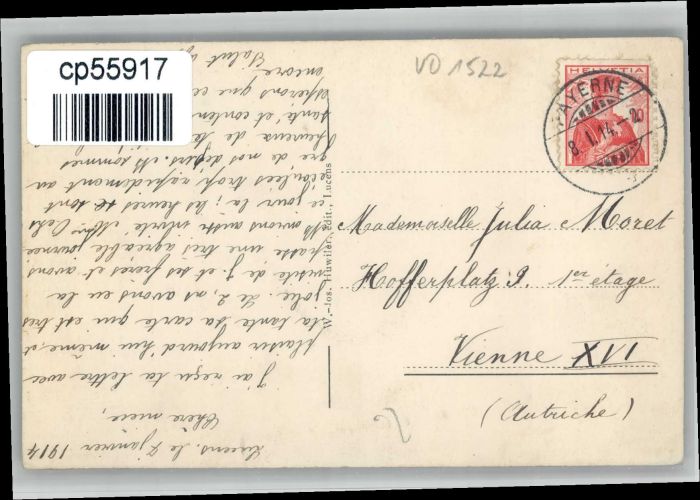 cp55917
VD 1522
HELVETIA
PAYERNE
8. I. 14. - 20
Mademoiselle Julia Moret
Hofferplatz 9. 1er étage
Vienne XVI
(Autriche)
W.-Jos. Huwiler, édit., Lucens
Lucens, le 7 janvier 1914
Chère nièce,
J'ai reçu ta lettre avec
plaisir aujourd'hui même, et
ta tante sa carte qui est très
jolie. Le 2, ns avons eu la
visite de J. et ses frères et avons
passé une très agréable journée
Ns avions aussi invité Mme
ce jour là; les heures se sont
écoulées trop rapidement au
gré de nos désirs. Ns sommes
heureux de ta
santé et conten
espérons que ce
encore
Salut